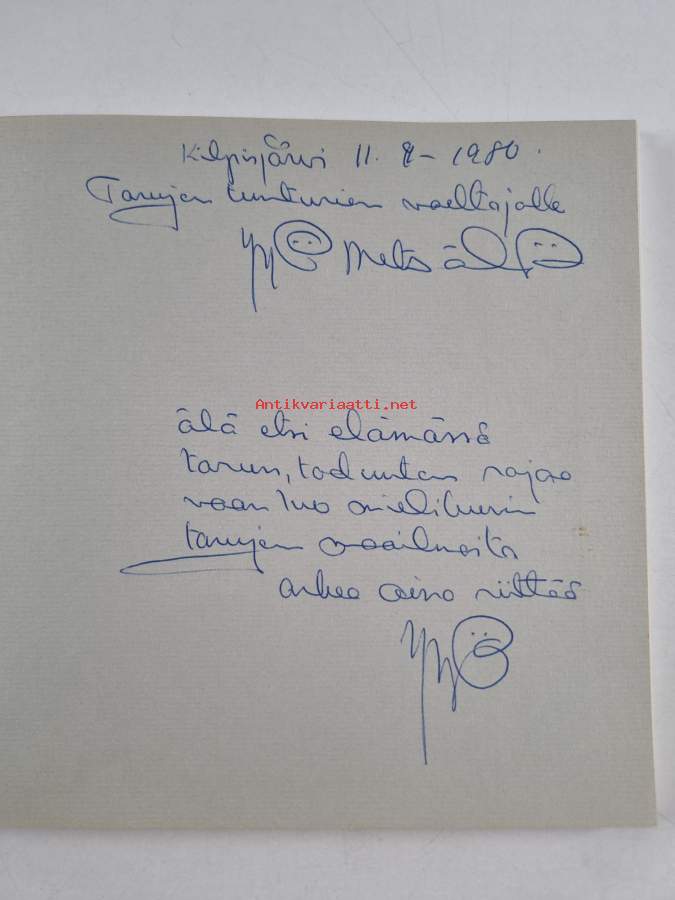 Kilpisjärvi 11. 9 - 1980.
Tarujen tunturien vaeltajalle
Yrjö Metsälä
Antikvariaatti.net
älä etsi elämässä
tarun, toduntan rajaa
vaan luo mielikuvin
tarujen maailmoita
arkea aina riittää
Yrjö